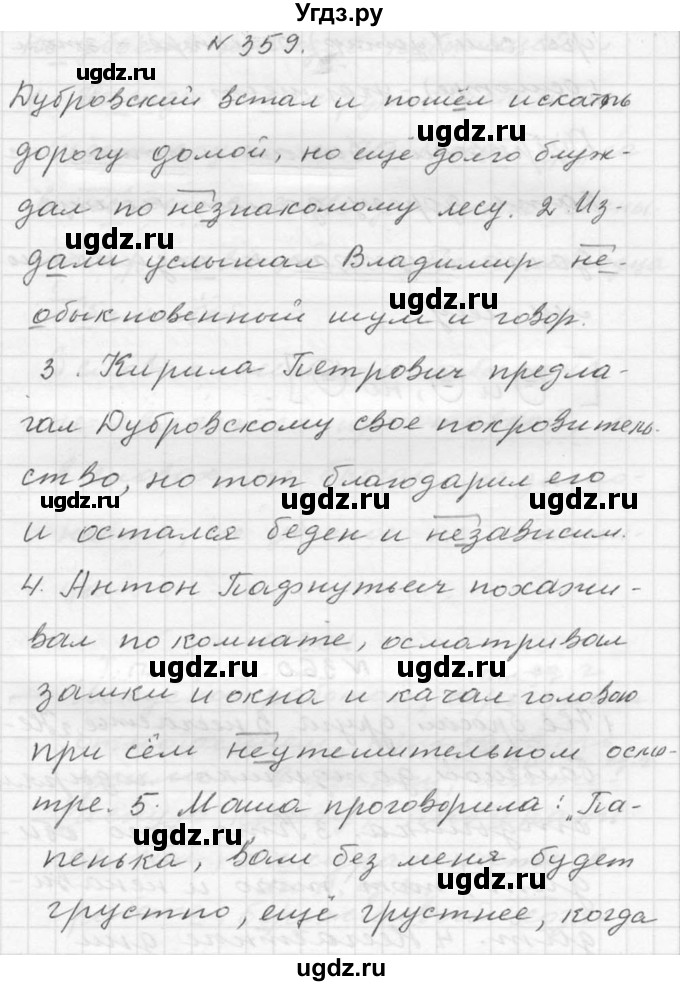 Угдз.ру
№ 359.
Дубровский встал и пошёл искать
дорогу домой, но ещё долго блуж-
дал по незнакомому лесу. 2. Из-
дали услышал Владимир не-
обыкновенный шум и говор.
3. Кирила Петрович предла-
гал Дубровскому свое покровитель-
ство, но тот благодарил его
и остался беден и независим.
4. Антон Пафнутьич похажи-
вал по комнате, осматривал
замки и окна и качал головою
при сём неутешительном осмо-
тре. 5. Маша проговорила: „Па-
пенька, вам без меня будет
грустно, ещё грустнее, когда
ugdz.ru
ugdz.ru
ugdz.ru
ugdz.ru
ugdz.ru
ugdz.ru
ugdz.ru
ugdz.ru
ugdz.ru
ugdz.ru
ugdz.ru
ugdz.ru
ugdz.ru